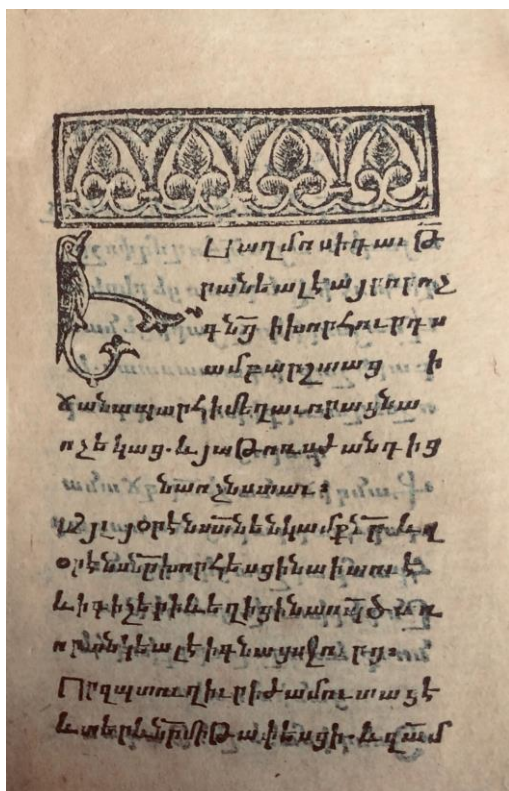 Սաղմոս ի դաւթ
Երանեալ է այր որ ոչ
գնց̃ ի խորհուրդս
ամբարշտաց ի
ճանապարհի մեղաւորաց նա
ոչ եկաց. և յաթոռս ժանդից
նա ոչ նստաւ։
Այլ յօրէնս տն̃ են կամք նր̃ և յ
օրէնս նր̃ խորհեսցի նա ի տուէ
և ի գիշերի և եղիցի նա որպ̃ ծառ
որ տնկեալ է ի գնացս ջուրց։
Որ զպտուղ իւր ի ժամու տացէ
և տերև նր̃ մի թափեսցի. և զամ